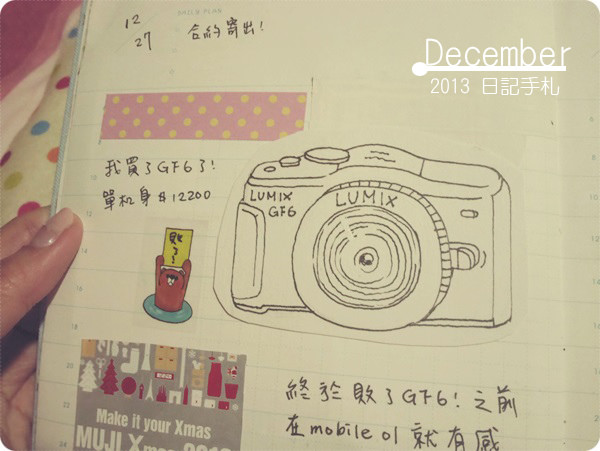 DAILY PLAN
12
27
合約寄出!
December
2013 日記手札
我買了GF6了!
單机身 $12200
LUMIX
GF6
LUMIX
敗了!
Make it your Xmas
MUJI Xmas 2013
終於敗了GF6! 之前
在mobile 01 就有感
10
12
14
16
18
20
22
24